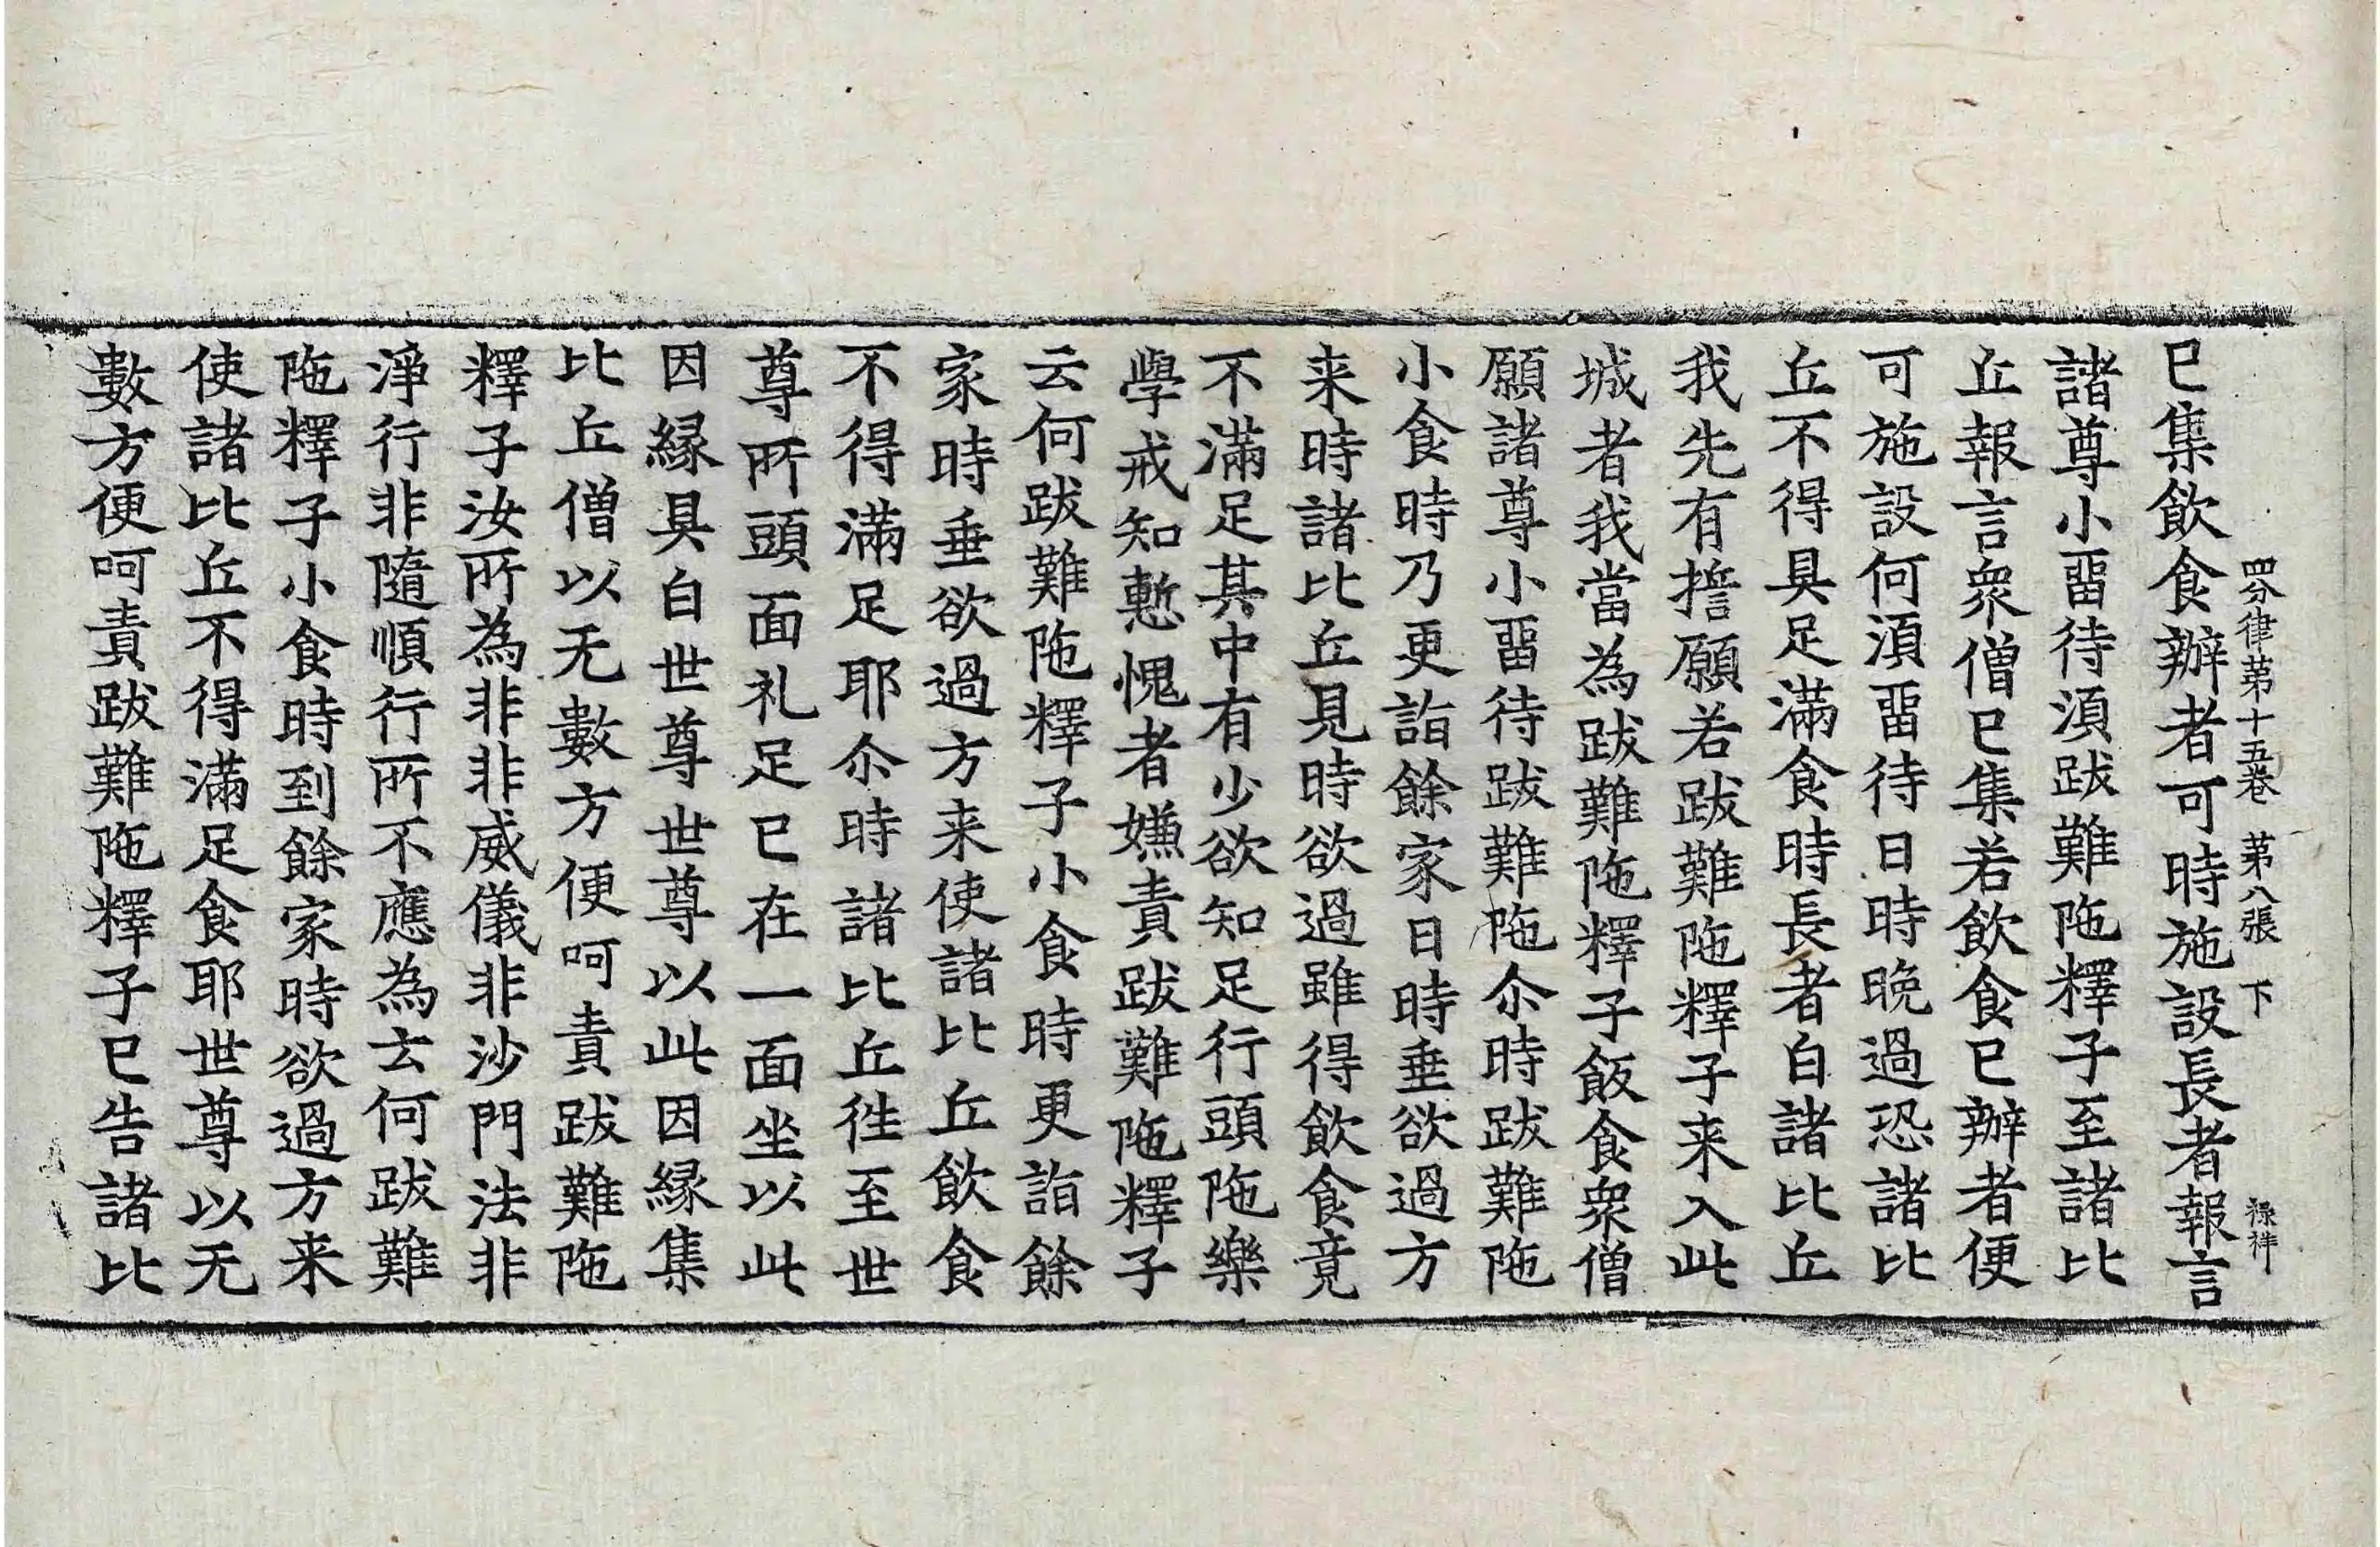 四分律苐十五卷 苐八張 下 禄祥
已集飲食辦者可時施設長者報言
諸尊小畱待湏跋難陁釋子至諸比
丘報言衆僧已集若飲食已辦者便
可施設何湏畱待日時晚過恐諸比
丘不得具足滿食時長者白諸比丘
我先有擔願若跋難陁釋子来入此
城者我當為跋難陁釋子飯食衆僧
願諸尊小畱待跋難陁尒時跋難陁
小食時乃更詣餘家日時垂欲過方
来時諸比丘見時欲過雖得飲食竟
不滿足其中有少欲知足行頭陁樂
學戒知慙愧者嫌責跋難陁釋子
云何跋難陁釋子小食時更詣餘
家時垂欲過方来使諸比丘飲食
不得滿足耶尒時諸比丘徃至世
尊所頭面礼足已在一面坐以此
因緣具白世尊世尊以此因緣集
比丘僧以无數方便呵責跋難陁
釋子汝所為非非威儀非沙門法非
淨行非隨順行所不應為云何跋難
陁釋子小食時到餘家時欲過方来
使諸比丘不得滿足食耶世尊以无
數方便呵責跋難陁釋子已告諸比